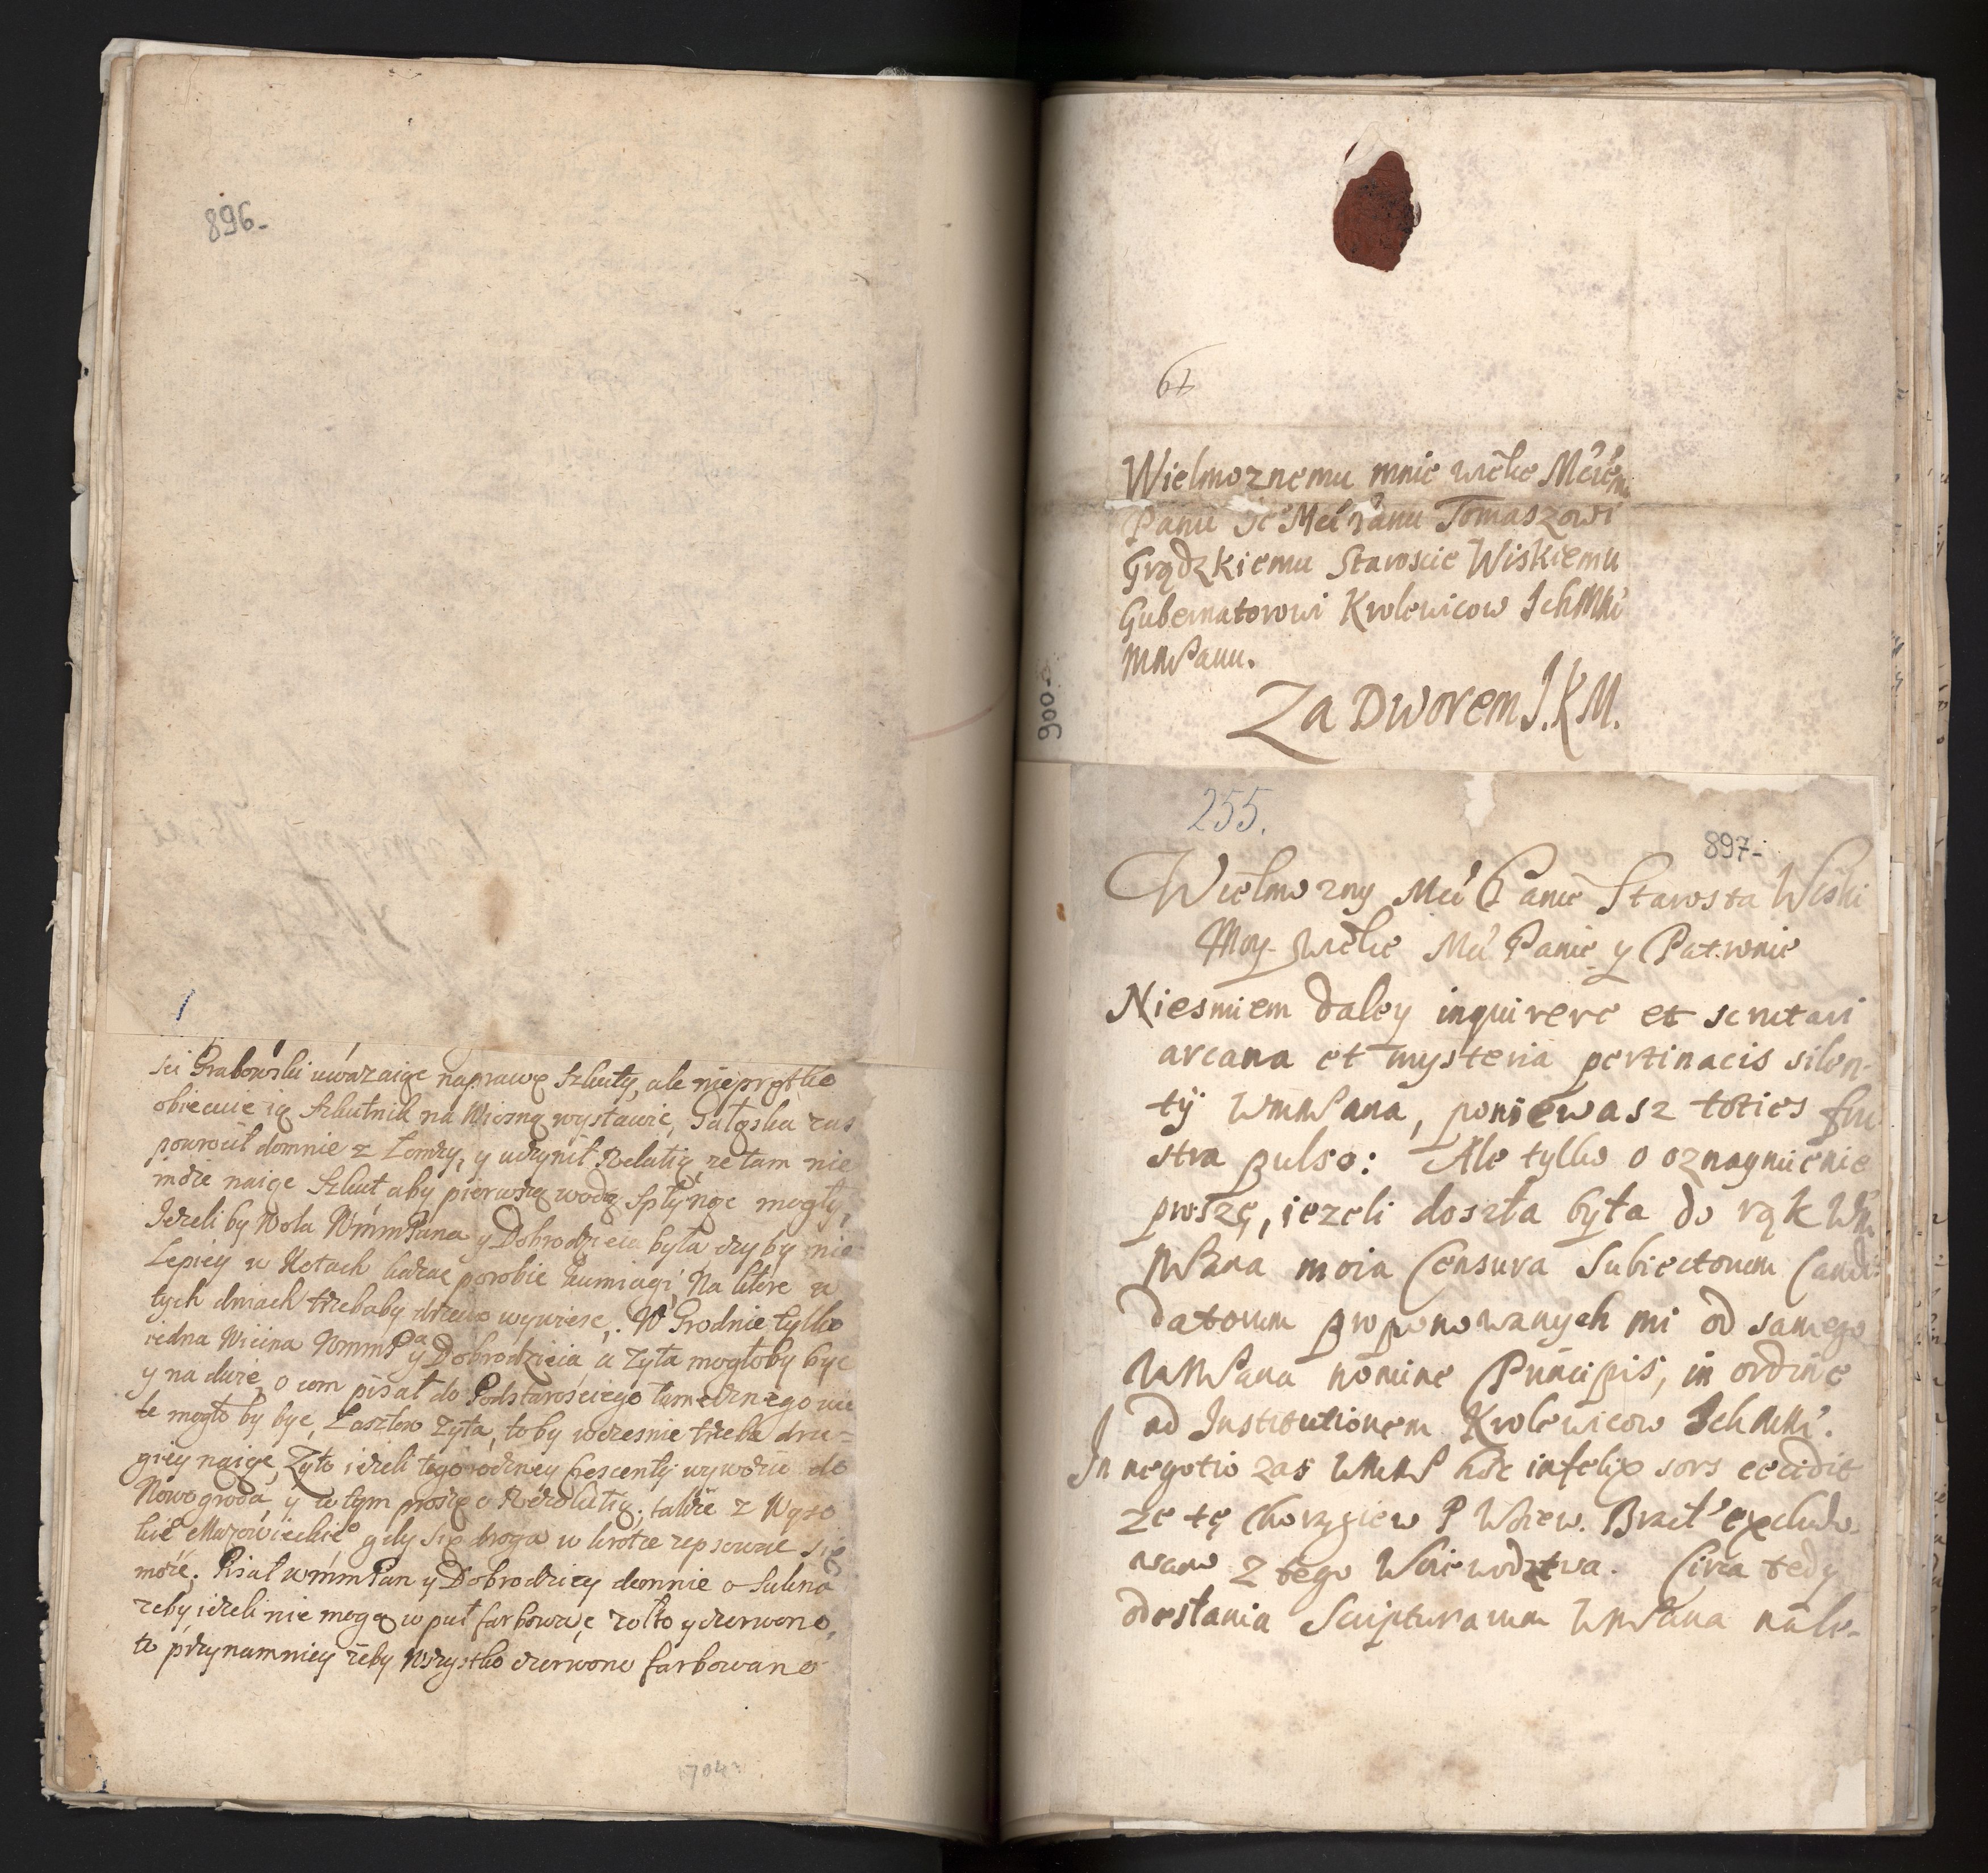 896-
sci Grabowski uwazaiąc naprawę Szkuty, ale nieprętko
obiecuie ią Szkutnik na Wiosnę wystawic, Gałąska zas
powrocił domnie z Łomży, y uczynił Relatią, ze tam nie
może naiąc Szkut aby pierwszą wodą spłynąc mogły,
Jeżeli by Wola WmmPana y Dobrodzieia była czy by nie
Lepiey w Kotach kazac porobic
tych dniach trzebaby drzewo wywiesc. W Grodnie tylko
iedna Wicina WmmPa y Dobrodzieia a Zyta mogłoby byc
y na dwie, o com pisał do Podstarościego tamecznego
by byc, Łasztow Zyta, to by wczesnie trzeba dru=
giey naiąc, Zyto iezeli tegoroczney Crescentij wywozic do
Nowogroda, y w tym proszę o Rezolutią; także z Wyso
kie° Mazowieckie° gdy się droga w krotce zepsowac się
może; Pisał WmmPan y Dobrodziey domnie o Sukno
zeby iezeli nie mogą w puł farbowac zołto y czerwono,
to przynamniey żeby wszystko czerwono farbowano
704
67
Wielmoznemu mnie wielce Mciem
Panu Je° Mci Panu Tomaszowi
Grądzkiemu Staroscie Wiskiemu
Gubernatorowi Krolewicow Ichmci
MMPanu.
Za Dworem J.K.M.
900-
255.
897-
Wielmozny Mci Panie Starosta Wiski
Moy wielce Mci Panie y Patronie
Niesmiem daley inquirere et scrutari
arcana et mysteria pertinacis silen-
tij WmmPana, poniewasz toties fru
stra pulso: Ale tylko o oznaymienie
proszę, iezeli doszła była do rąk Wm
MPana moia Censura Subiectorum Candi
datorum proponowanych mi od samego
WMPana nomine Principis, in ordine
ad Institutionem Krolewicow Ichmci.
In negotio zas WMMP hic infelix sors cecidit
ze tę Chorągiew P Woiew. Bracł excludo
wano z tego Woiewodztwa. Circa tedy
odesłania Scripturarum WMPana nale-